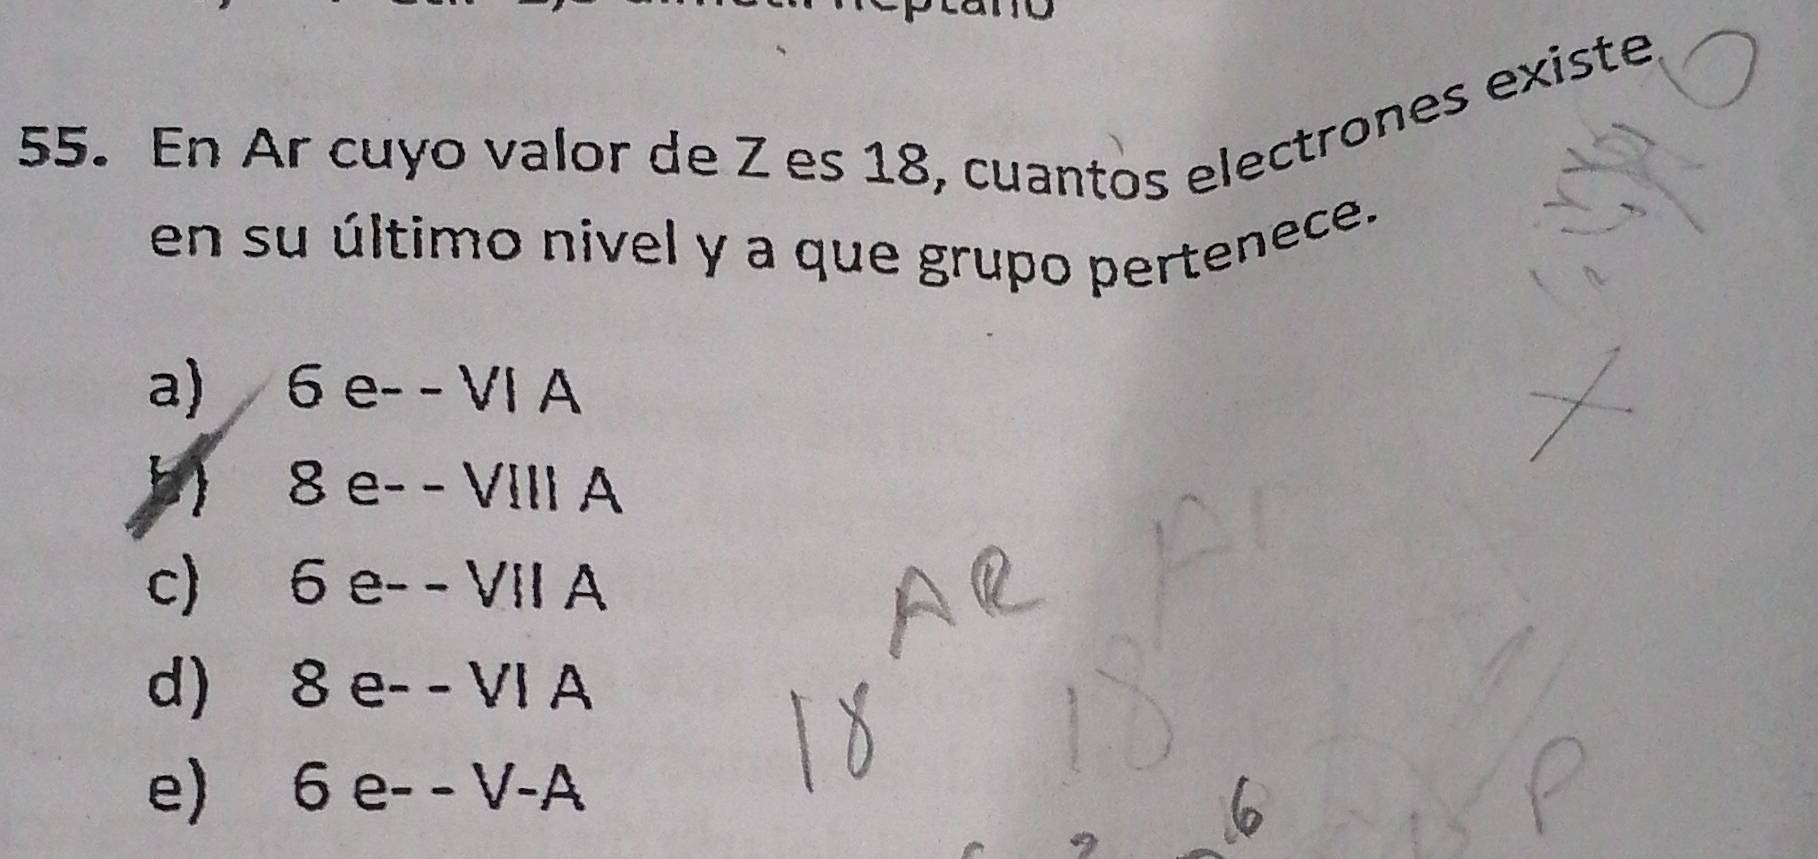 55. En Ar cuyo valor de Z es 18, cuantos electrones existe
en su último nivel y a que grupo pertenece.
a) 6 e- - VI A
b) 8 e- - VIII A
c) 6 e- - VII A
d) 8 e- - VI A
e) 6 e- - V-A
AR
18
18
6
P